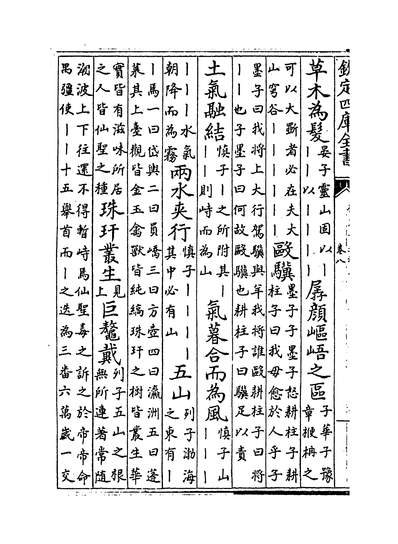 欽定四庫全書
卷八
草木為髮 晏子靈山固以｜
｜以｜｜｜ 孱顔嶇峿之區 子華子豫
章楩枏之
可以大斵者必在夫大
山穹谷｜｜｜｜｜｜ 敺驥 墨子子墨子怒耕柱子耕
柱子曰我毋愈於人乎子
墨子曰我將上大行駕驥與羊我將誰敺耕柱子曰將
｜｜也子墨子曰何故敺驥也耕柱子曰驥足以責
土氣融結 慎子｜之所附其｜
｜｜｜則峙而為山 氣暮合而為風 慎子山｜
｜｜｜｜｜
｜｜｜｜水氣
朝降而為霧 兩水夾行 慎子｜｜｜｜
其中必有山 五山 列子渤海
之東有｜
｜焉一曰岱輿二曰員嶠三曰方壺四曰瀛洲五曰蓬
萊其上臺觀皆金玉禽獸皆純縞珠玕之樹皆叢生華
實皆有滋味所居
之人皆仙聖之種 珠玕叢生 見
上 巨鰲戴 列子五山之根
無所連著常隨
潮波上下往還不得暫峙焉仙聖毒之訴之於帝帝命
禺彊使｜｜十五舉首而｜之迭為三番六萬歲一交